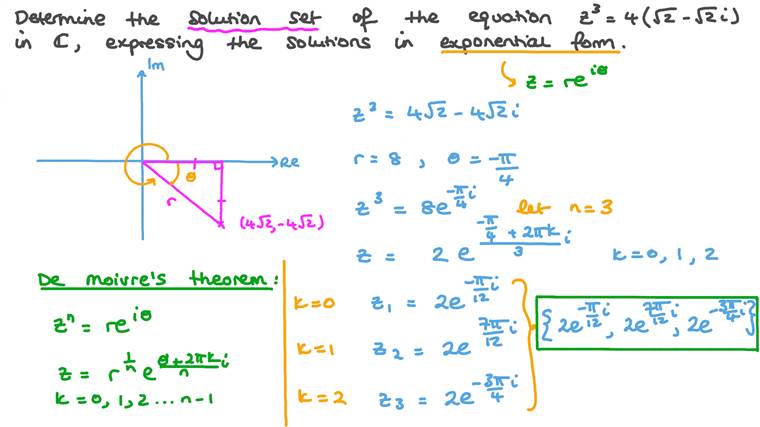 Determine the solution set of the equation z³ = 4(√2 − √2i)
in ℂ, expressing the solutions in exponential form.
z = re^(iθ)
Im
Re
θ
r
(4√2, −4√2)
z³ = 4√2 − 4√2i
r = 8 , θ = −π/4
z³ = 8e^(−π/4 i) let n = 3
z = 2e^((−π/4 + 2πk)/3 i) k = 0, 1, 2
De moivre's theorem:
zⁿ = re^(iθ)
z = r^(1/n) e^((θ + 2πk)/n i)
k = 0, 1, 2 ... n−1
k=0 z₁ = 2e^(−π/12 i)
k=1 z₂ = 2e^(7π/12 i)
k=2 z₃ = 2e^(−3π/4 i)
{2e^(−π/12 i), 2e^(7π/12 i), 2e^(−3π/4 i)}